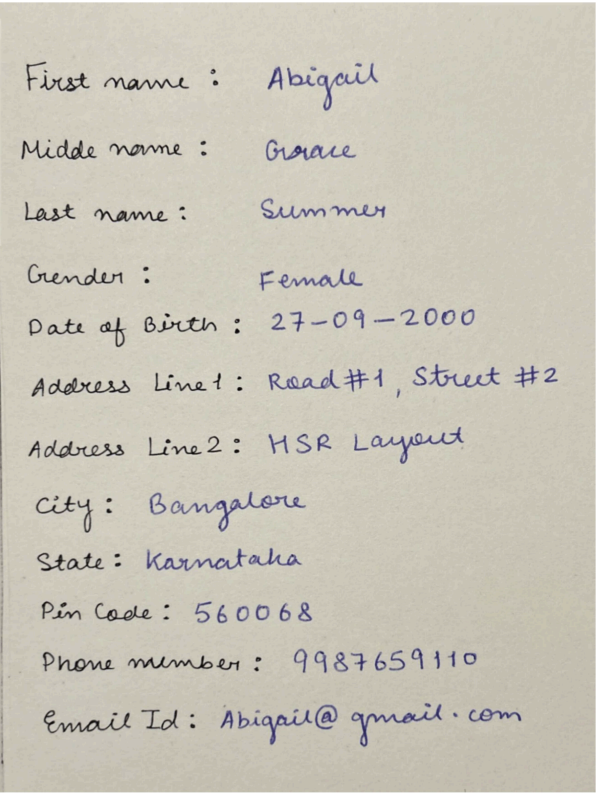 First name : Abigail
Midde name : Grace
Last name : Summer
Gender : Female
Date of Birth : 27-09-2000
Address Line 1 : Road #1, Street #2
Address Line 2 : HSR Layout
City : Bangalore
State : Karnataka
Pin Code : 560068
Phone number : 9987659110
Email Id : Abigail@gmail.com